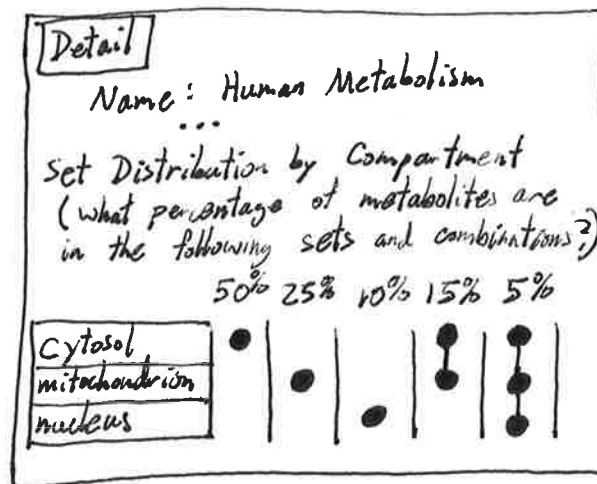 Detail
Name: Human Metabolism
...
Set Distribution by Compartment
(what percentage of metabolites are
in the following sets and combinations?)
50% 25% 10% 15% 5%
Cytosol
mitochondrion
nucleus